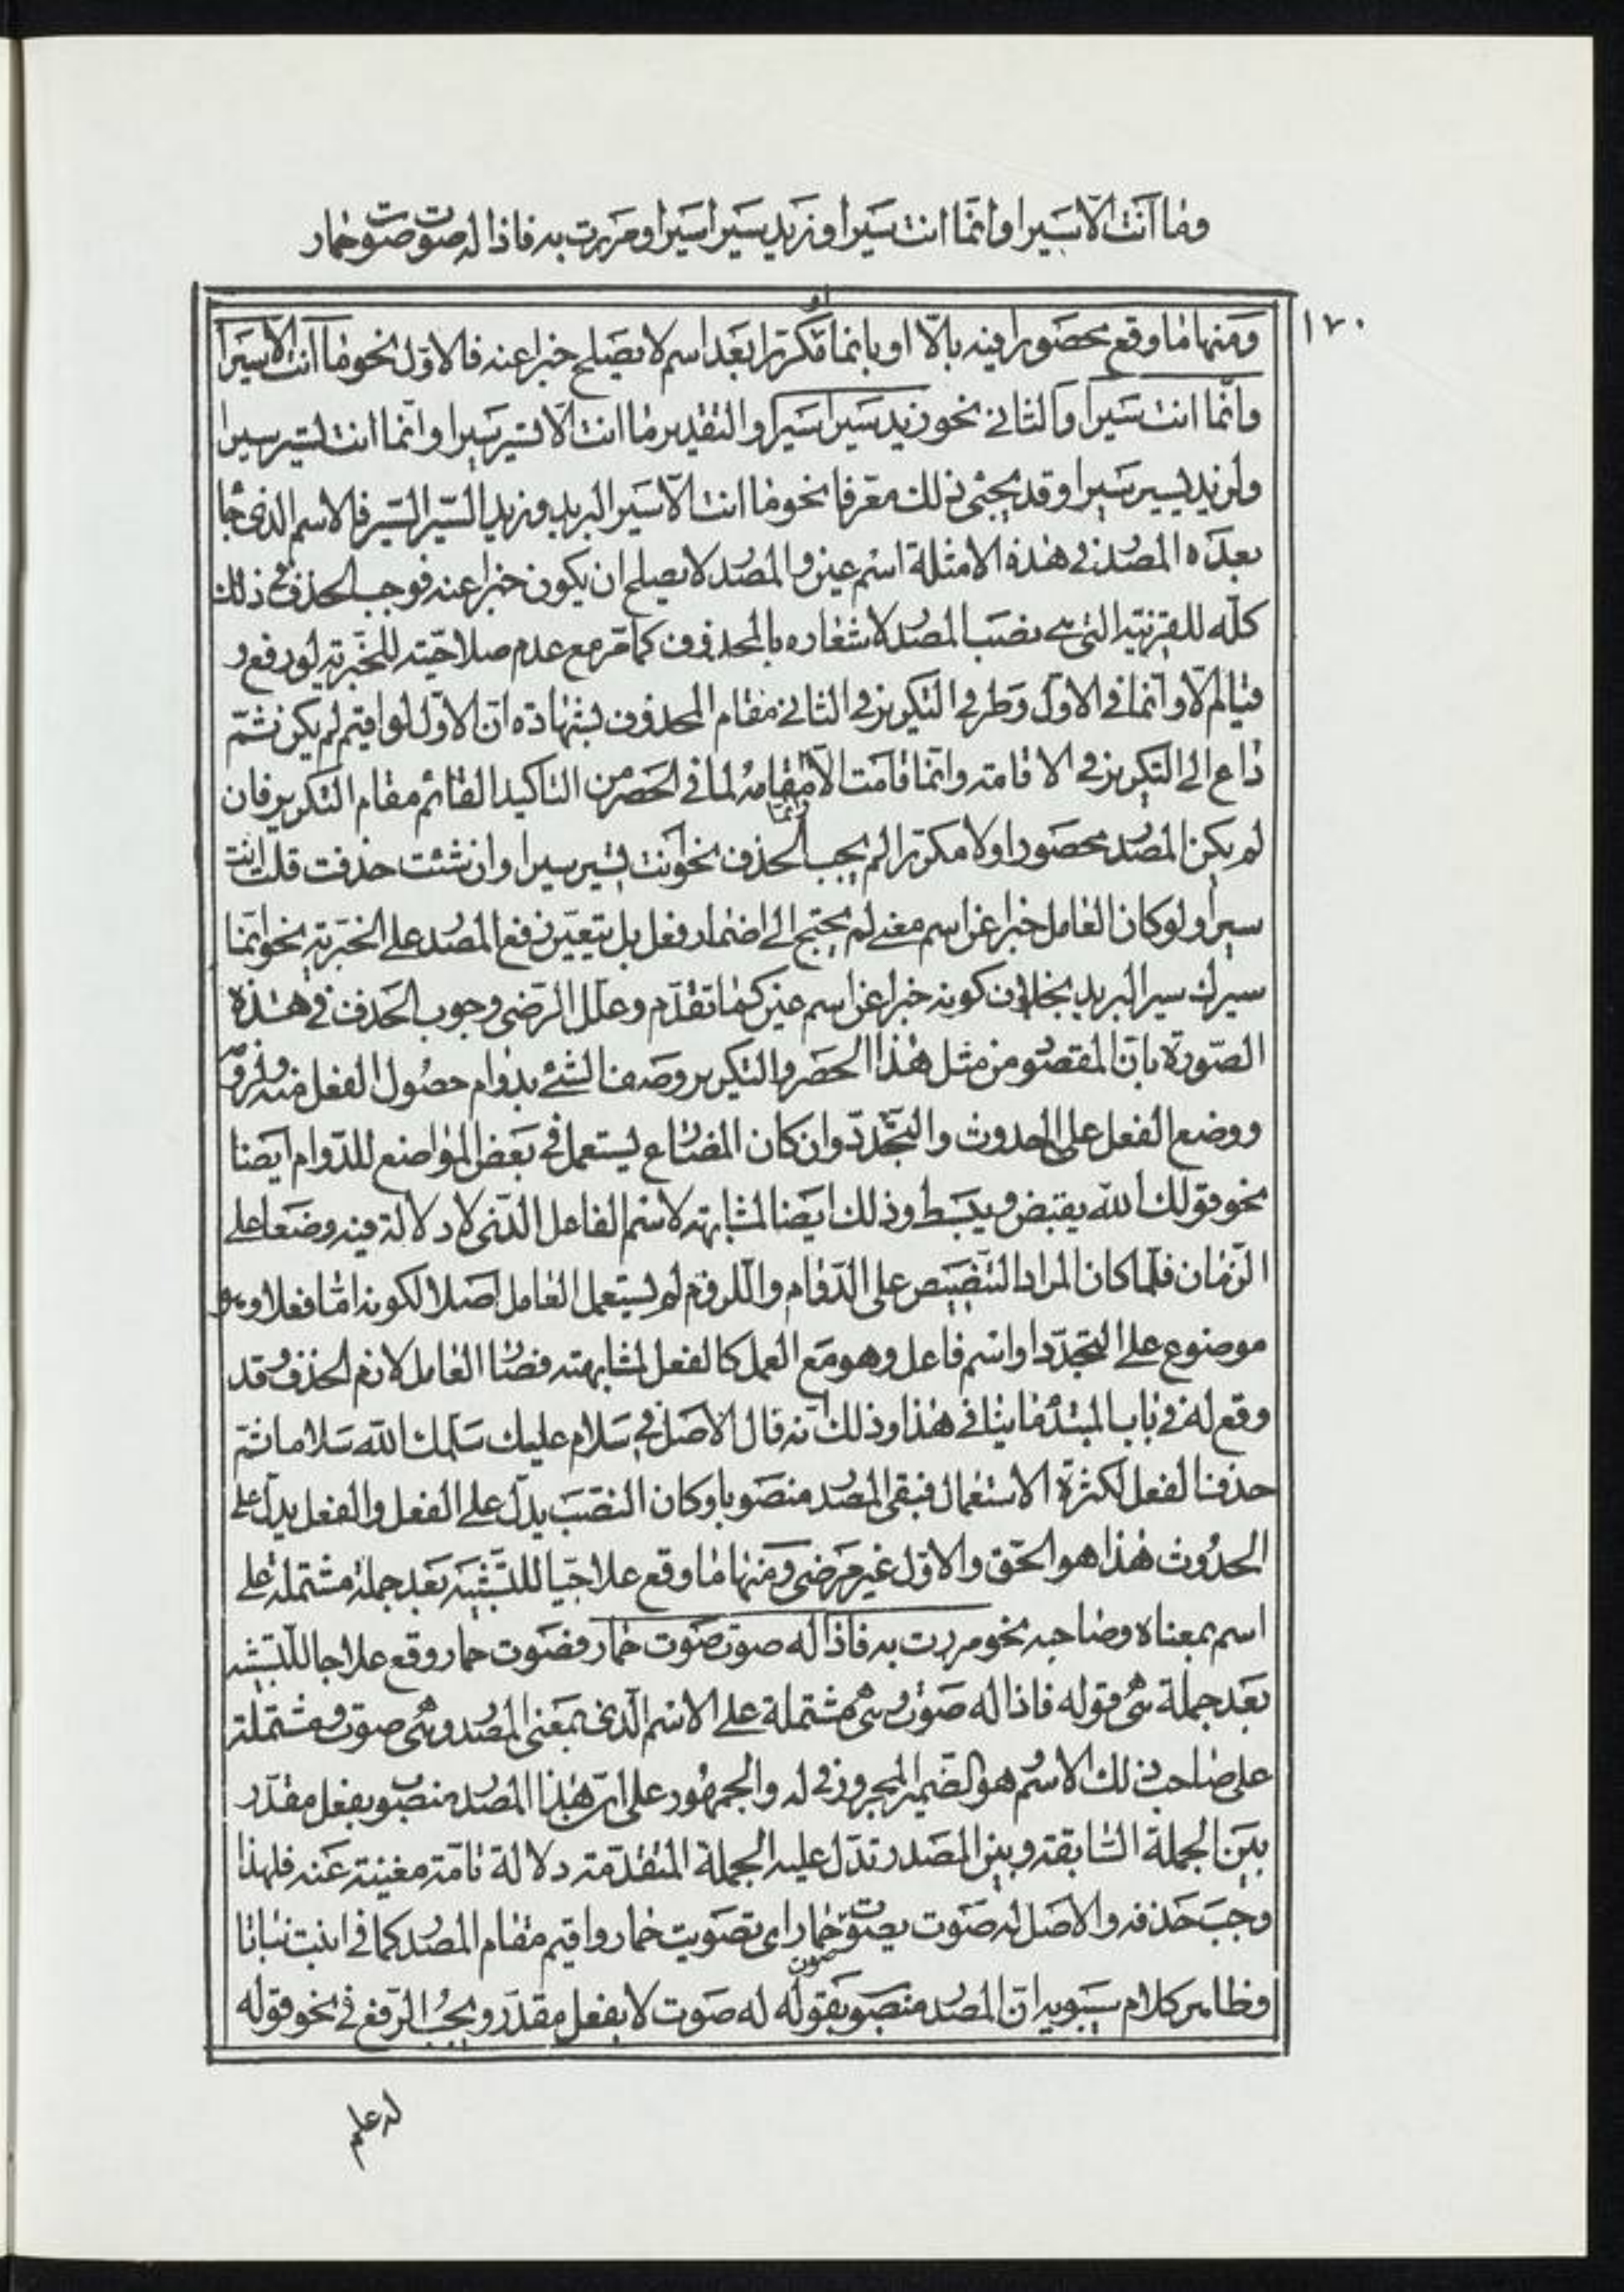 وما أنت الّا سيرا وانّما انت سيرا وزيد سيرا سيرا ومررت به فاذا له صوت صوت حمار
١٧٠
ومنها ما وقع محصورا فيه بالّا او بانما او مكررا بعد اسم لا يصلح خبرا عنه فالاوّل نحو ما انت الّا سيرا
وانّما انت سيرا والثاني نحو زيد سيرا سيرا والتقدير ما انت الا تسير سيرا وانما انت تسير سيرا
وان زيد يسير سيرا وقد يجئ ذلك معرفا نحو ما انت الّا سير البريد وزيد السّير السّير فالاسم الذى جا
بعده المصدر فى هذه الامثلة اسم عين والمصدر لا يصلح ان يكون خبرا عنه فوجب الحذف فى ذلك
كلّه للقرينة التى هى نصب المصدر لاشعاره بالمحذوف كما مرّ مع عدم صلاحيّته للخبريّة لو رفع و
قيام الّا وانّما فى الاوّل وطرفى التكرير فى الثانى مقام المحذوف بشهادة انّ الاوّل لو اقيم لم يكن ثمّ
داع الى التكرير فى الاقامة وانّما قامت الّا وانّما مقامه لما فى الحصر من التاكيد القائم مقام التكرير فان
لم يكن المصدر محصورا ولا مكرّرا لم يجب الحذف نحو انت تسير سيرا وان شئت حذفت قلت انت
سيرا ولو كان العامل خبرا عن اسم معنى لم يحتج الى اضمار فعل بل يتعيّن رفع المصدر على الخبريّة نحو انّما
سيرك سير البريد بخلاف كونه خبرا عن اسم عين كما تقدّم وعلل الرّضى وجوب الحذف فى هذه
الصّورة بانّ المقصود من مثل هذا الحصر والتكرير وصف الشئ بدوام حصول الفعل منه ولزومه
ووضع الفعل على الحدوث والتجدّد وان كان المضارع يستعمل فى بعض المواضع للدّوام ايضا
نحو قولك الله يقبض ويبسط وذلك ايضا لمشابهته لاسم الفاعل الّذى لا دلالة فيه وضعا على
الزّمان فلمّا كان المراد التنصيص على الدّوام واللّزوم لم يستعمل العامل اصلا لكونه امّا فعلا وهو
موضوع على التجدّد او اسم فاعل وهو مع العمل كالفعل لمشابهته فصار العامل لازم الحذف وقد
وقع له فى باب المبتدء ما ينافى هذا وذلك انّه قال الاصل فى سلام عليك سلمك الله سلاما ثمّ
حذف الفعل لكثرة الاستعمال فبقى المصدر منصوبا وكان النصب يدلّ على الفعل والفعل يدلّ على
الحدوث هذا هو الحقّ والاوّل غير مرضى ومنها ما وقع علاجيّا للتّشبيه بعد جملة مشتملة على
اسم بمعناه وصاحبه نحو مررت به فاذا له صوت صوت حمار فصوت حمار وقع علاجا للتّشبيه
بعد جملة هى قوله فاذا له صوت وهى مشتملة على الاسم الّذى بمعنى المصدر وهى صوت ومشتملة
على صاحب ذلك الاسم وهو الضّمير المجرور فى له والجمهور على انّ هذا المصدر منصوب بفعل مقدّر
بين الجملة السّابقة وبين المصدر تدلّ عليه الجملة المتقدّمة دلالة تامّة مغنية عنه فلهذا
وجب حذفه والاصل له صوت يصوّت صوت حمار اى تصويت حمار واقيم مقام المصدر كما فى انبت نباتا
وظاهر كلام سيبويه انّ المصدر منصوب بقوله له صوت لا بفعل مقدّر ويجب الرّفع فى نحو قوله
له علم